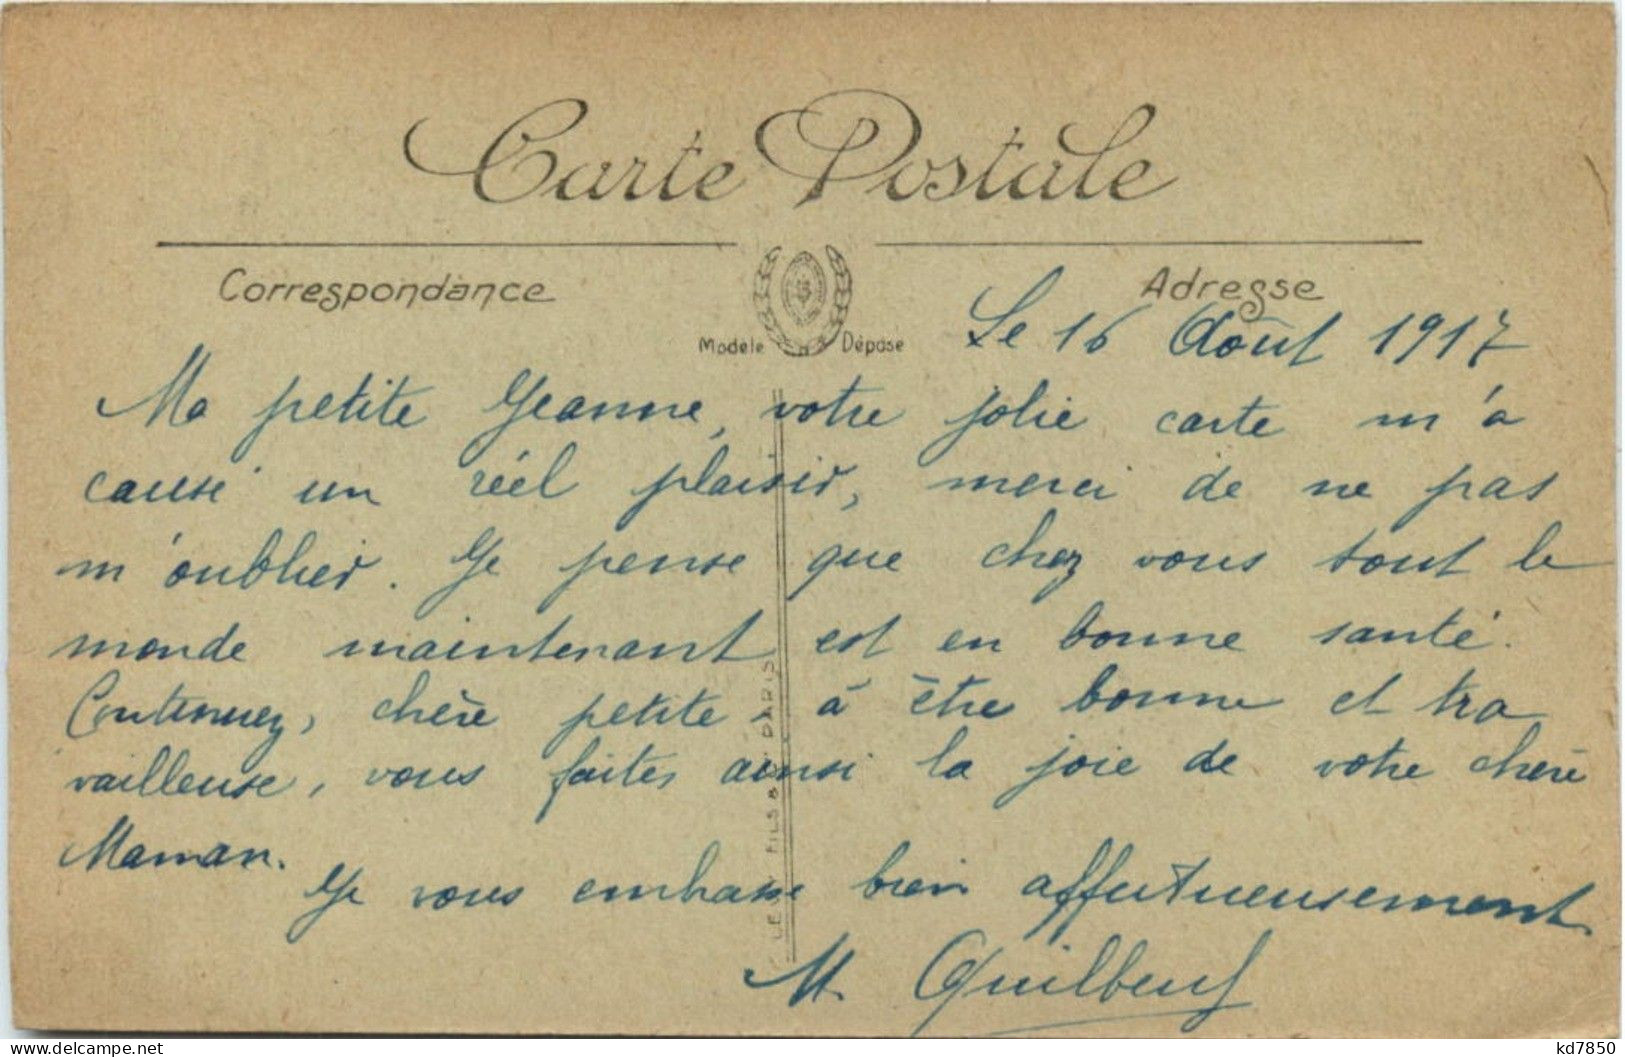 Carte Postale
Correspondance
Adresse
Modele Déposé
Le 16 Août 1917
Ma petite Jeanne, votre jolie carte m'a
causé un réel plaisir, merci de ne pas
m'oublier. Je pense que chez vous tout le
monde maintenant est en bonne santé.
Continuez, chère petite, à être bonne et tra
vailleuse, vous faites ainsi la joie de votre chère
Maman.
Je vous embrasse bien affectueusement
M. Quilbeuf
FILS PARIS
www.delcampe.net
kd7850